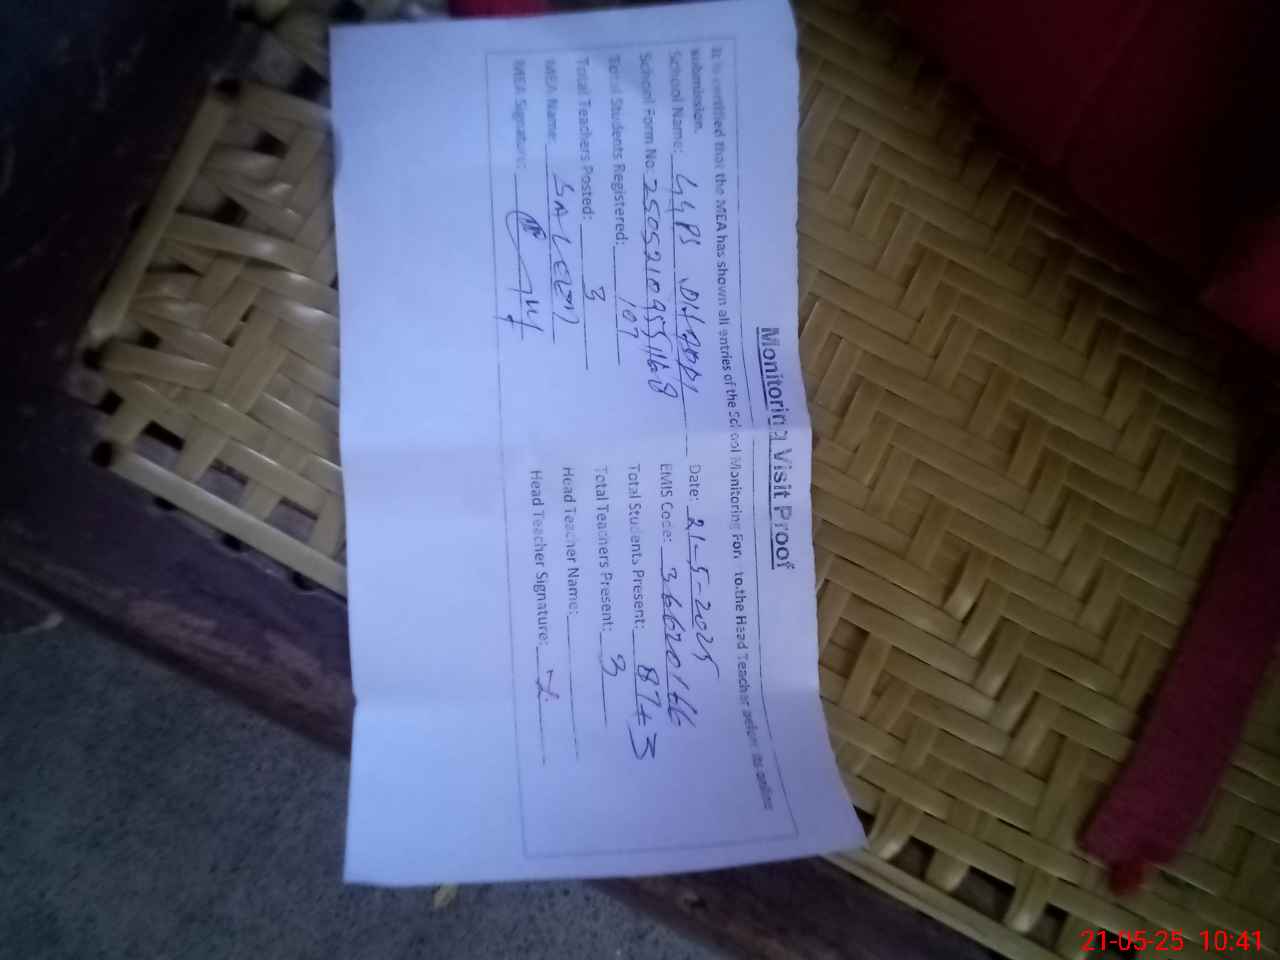 Monitoring Visit Proof
It is certified that the MEA has shown all entries of the School Monitoring Form to the Head Teacher before its online
submission.
School Name: GGPS Date: 21-5-2025
School Form No: EMIS Code: 36620166
Total Students Registered: 107 Total Students Present: 87+3
Total Teachers Posted: 3 Total Teachers Present: 3
MEA Name: SALEEM Head Teacher Name:
MEA Signature: Head Teacher Signature:
21-05-25 10:41